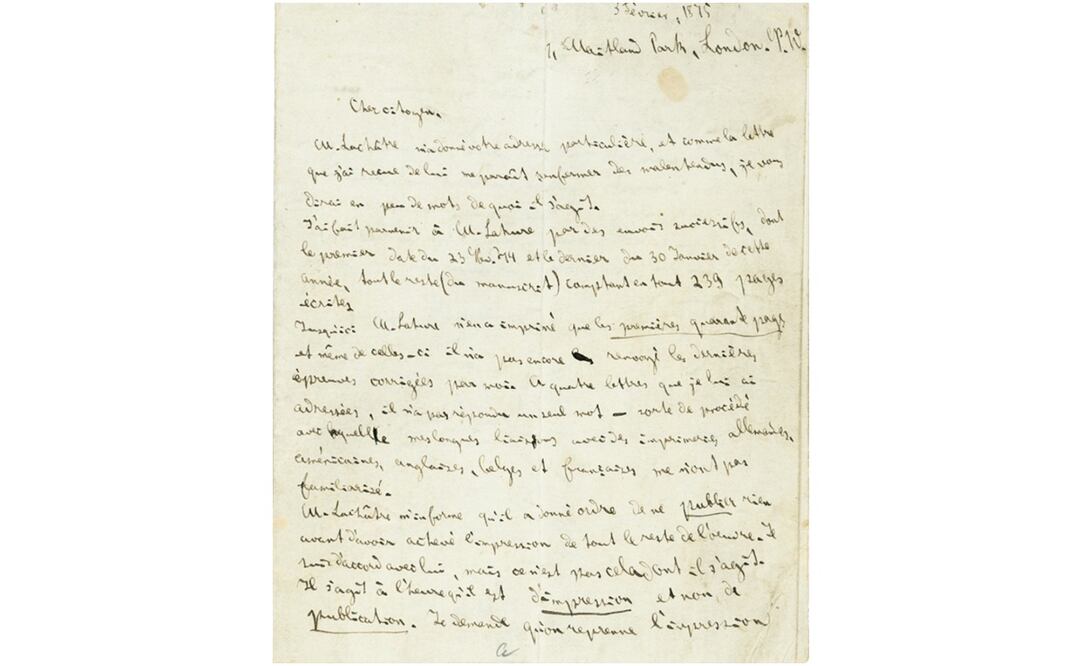 3 Février, 1875
1, Maitland Park, London. N.W.
Cher citoyen,
M. Lachâtre m'a donné votre adresse particulière, et comme la lettre
que j'ai reçue de lui me paraît renfermer des malentendus, je vous
dirai en peu de mots de quoi il s'agit.
J'ai fait parvenir à M. Lahure par des envois successifs, dont
le premier date du 23 Nov. 74 et le dernier du 30 Janvier de cette
année, tout le reste (du manuscrit) comptant en tout 239 pages
écrites
Jusqu'ici M. Lahure n'en a imprimé que les premières quarante pages
et même de celles-ci il n'a pas encore renvoyé les dernières
épreuves corrigées par moi. A quatre lettres que je lui ai
adressées, il n'a pas répondu un seul mot — sorte de procédé
avec laquelle mes longues liaisons avec des imprimeries allemandes,
américaines, anglaises, belges et françaises ne m'ont pas
familiarisé.
M. Lachâtre m'informe qu'il a donné ordre de ne publier rien
avant d'avoir achevé l'impression de tout le reste de l'œuvre. Je
suis d'accord avec lui, mais ce n'est pas cela dont il s'agit.
Il s'agit à l'heure qu'il est d'impression et non de
publication. Je demande qu'on reprenne l'impression